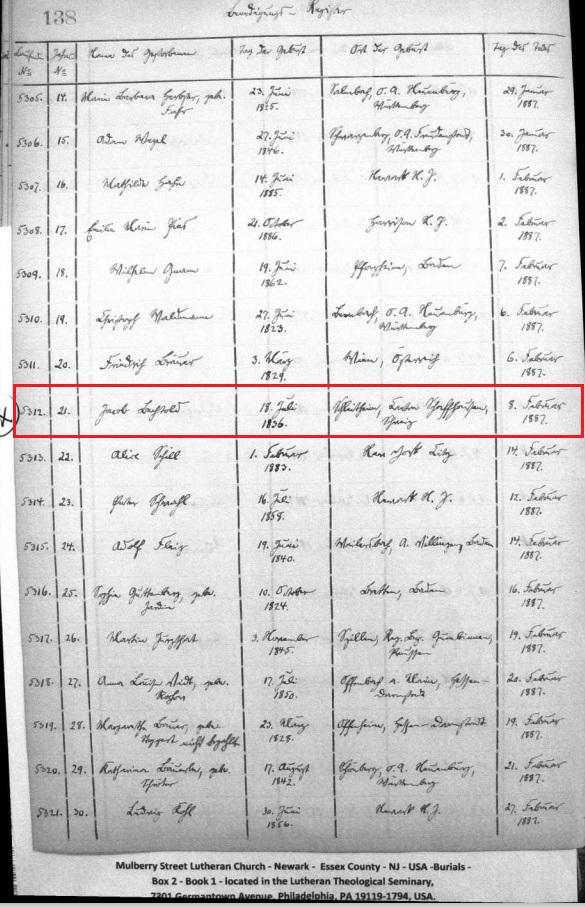 138
Beerdigungs - Register
Laufende Jahres Name des Gestorbenen Tag der Geburt Ort der Geburt Tag des Todes
No No
5305. 14. Maria Barbara geb. 23. Juni O.A. Neuenbürg, 29. Januar
Württemberg 1887.
5306. 15. Adam 27. Juni O.A. Freudenstadt, 30. Januar
1846. Württemberg 1887.
5307. 16. Mathilde Hahn 14. Juni Newark N.J. 1. Februar
1885. 1887.
5308. 17. Emilie Maria 21. October Harrison N.J. 2. Februar
1886. 1887.
5309. 18. Wilhelm 19. Juni Pforzheim, Baden 7. Februar
1862. 1887.
5310. 19. Christoph Waldmann 27. Juni Bernbach, O.A. Neuenbürg, 6. Februar
1823. Württemberg 1887.
5311. 20. Friedrich Bräuer 3. März Wien, Österreich 6. Februar
1829. 1887.
5312. 21. Jacob Bechtold 18. Juli Schleitheim, Canton Schaffhausen, 8. Februar
1836. Schweiz 1887.
5313. 22. Alice Schill 1. Februar New York City 14. Februar
1883. 1887.
5314. 23. Peter 16. Juli Newark N.J. 12. Februar
1887.
5315. 24. Adolf Fleig 19. Juni Weilersbach, A. Villingen, Baden 14. Februar
1840. 1887.
5316. 25. Sophie Güttenberg, geb. 10. October Bretten, Baden 16. Februar
1824. 1887.
5317. 26. Martin 3. November Reg. Bez. Gumbinnen, 19. Februar
1845. Preussen 1887.
5318. 27. Anna Louise geb. 17. Juli Offenbach a. Main, Hessen- 20. Februar
1850. Darmstadt 1887.
5319. 28. Margaretha Bauer, geb. 23. März Offenheim, Hessen-Darmstadt 19. Februar
nicht bezahlt 1828. 1887.
5320. 29. Katharina Bäuerle, geb. 17. August Schömberg, O.A. Neuenbürg, 21. Februar
1842. Württemberg 1887.
5321. 30. Ludwig Kohl 30. Juni Newark N.J. 27. Februar
1856. 1887.
Mulberry Street Lutheran Church - Newark - Essex County - NJ - USA -Burials -
Box 2 - Book 1 - located in the Lutheran Theological Seminary,
7301 Germantown Avenue, Philadelphia, PA 19119-1794, USA.